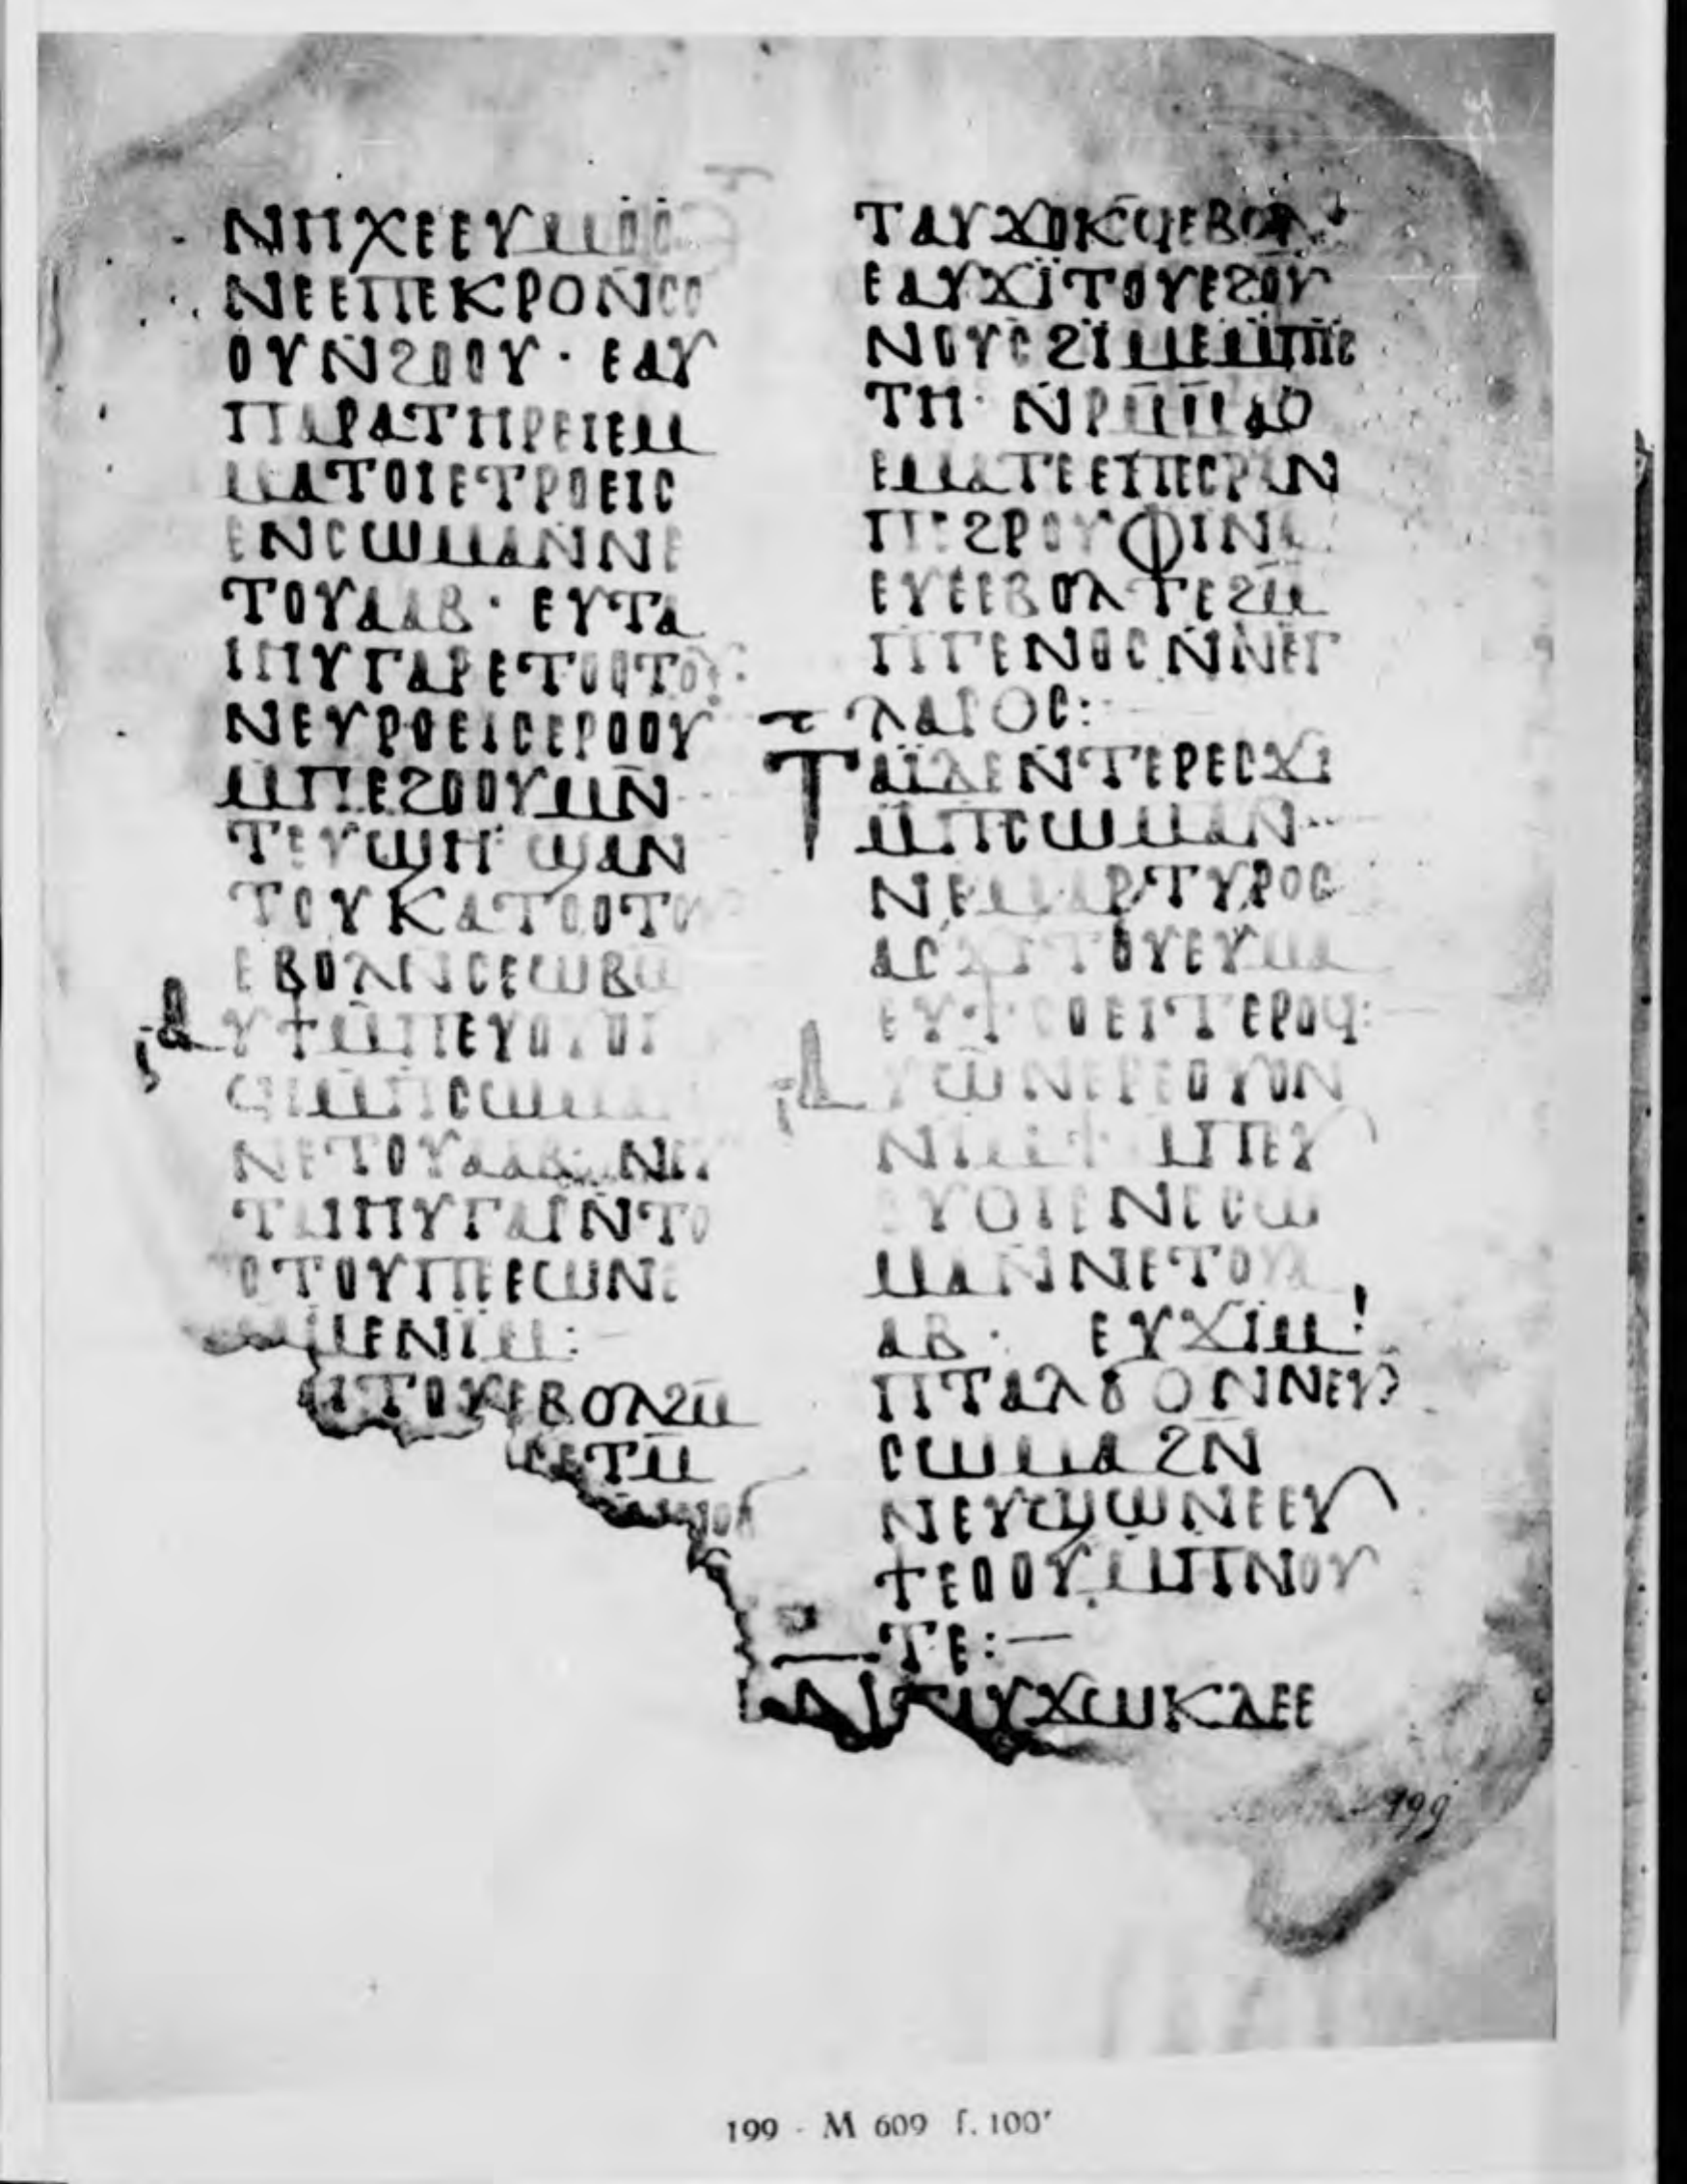 ⲛⲏϫⲉⲉⲩⲙⲟⲟ
ⲛⲉⲉⲡⲉⲕⲣⲟⲛ̄ⲥⲟ
ⲟⲩⲛ̄ϩⲟⲟⲩ· ⲉⲁⲩ
ⲡⲁⲣⲁⲧⲏⲣⲉⲓⲉⲙ
ⲙⲁⲧⲟⲓⲉⲧⲣⲟⲉⲓⲥ
ⲉⲛⲥⲱⲙⲁⲛⲛⲉ
ⲧⲟⲩⲁⲁⲃ· ⲉⲩⲧⲁ
ⲓⲏⲩⲅⲁⲣⲉⲧⲟⲟⲧⲟⲩ:
ⲛⲉⲩⲣⲟⲉⲓⲥⲉⲣⲟⲟⲩ
ⲙ̄ⲡⲉϩⲟⲟⲩⲙⲛ̄
ⲧⲉⲩϣⲏ ϣⲁⲛ
ⲧⲟⲩⲕⲁⲧⲟⲟⲧⲟⲩ
ⲉⲃⲟⲗⲛⲥⲉⲱⲃϣ
ⲁⲩϯⲙ̄ⲡⲉⲩⲟⲩⲟⲓ
ϥⲓⲙ̄ⲡⲥⲱⲙⲁ
ⲛⲉⲧⲟⲩⲁⲁⲃ· ⲛⲉⲩ
ⲧⲁⲓⲏⲩⲅⲁⲣⲛ̄ⲧⲟ
ⲟⲧⲟⲩⲡⲉⲉⲱⲛⲉ
ⲙⲉⲛⲓⲙ:
ⲓⲧⲟⲩⲉⲃⲟⲗϩⲙ̄
ⲉⲧⲙ̄
ⲧⲁⲩϫⲟⲕϥⲉⲃⲟⲗ·
ⲉⲁⲩϫⲓ̈ⲧⲟⲩⲉϩⲟⲩ
ⲛⲟⲩⲥϩⲓⲙⲉⲙ̄ⲡⲓⲥ
ⲧⲏ· ⲛ̄ⲣⲙ̄ⲙⲁⲟ
ⲉⲙⲁⲧⲉⲉⲡⲉⲥⲣⲁⲛ
ⲡⲉϩⲣⲟⲩⲫⲓⲛⲁ
ⲉⲩⲉⲉⲃⲟⲗⲧⲉϩⲙ̄
ⲡⲅⲉⲛⲟⲥⲛ̄ⲛⲉⲅ
ⲗⲁⲅⲟⲥ:
ⲧⲁⲓ̈ⲇⲉⲛ̄ⲧⲉⲣⲉⲥϫⲓ
ⲙ̄ⲡⲥⲱⲙⲁⲛ
ⲛⲉⲙⲁⲣⲧⲩⲣⲟⲥ
ⲁⲥϫⲓⲧⲟⲩⲉⲩⲙⲁ
ⲉⲩϯⲥⲟⲉⲓⲧⲉⲣⲟϥ:
ⲁⲩⲱⲛⲉⲣⲉⲟⲩⲟⲛ
ⲛⲓⲙϯ ⲙ̄ⲡⲉⲩ
ⲟⲩⲟⲓⲉⲛⲉⲥⲱ
ⲙⲁⲛⲛⲉⲧⲟⲩⲁ
ⲁⲃ· ⲉⲩϫⲓⲙ̄
ⲡⲧⲁⲗϭⲟⲛⲛⲉⲩ
ⲥⲱⲙⲁϩⲛ̄
ⲛⲉⲩϣⲱⲛⲉⲉⲩ
ϯⲉⲟⲟⲩⲙ̄ⲡⲛⲟⲩ
ⲧⲉ:—
ⲛ̄ⲧⲁⲩϫⲱⲕⲇⲉⲉ
199
199 - M 609 f. 100ʳ